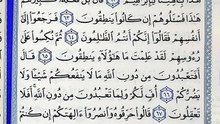 هَٰذَا فَسْـَٔلُوهُمْ إِن كَانُوا۟ يَنطِقُونَ ٦٣ فَرَجَعُوٓا۟ إِلَىٰٓ
أَنفُسِهِمْ فَقَالُوٓا۟ إِنَّكُمْ أَنتُمُ ٱلظَّٰلِمُونَ ٦٤ ثُمَّ نُكِسُوا۟ عَلَىٰ
رُءُوسِهِمْ لَقَدْ عَلِمْتَ مَا هَٰٓؤُلَآءِ يَنطِقُونَ ٦٥ قَالَ
أَفَتَعْبُدُونَ مِن دُونِ ٱللَّهِ مَا لَا يَنفَعُكُمْ شَيْـًٔا وَلَا
يَضُرُّكُمْ ٦٦ أُفٍّ لَّكُمْ وَلِمَا تَعْبُدُونَ مِن دُونِ ٱللَّهِ أَفَلَا
تَعْقِلُونَ ٦٧ قَالُوا۟ حَرِّقُوهُ وَٱنصُرُوٓا۟ ءَالِهَتَكُمْ إِن كُنتُمْ